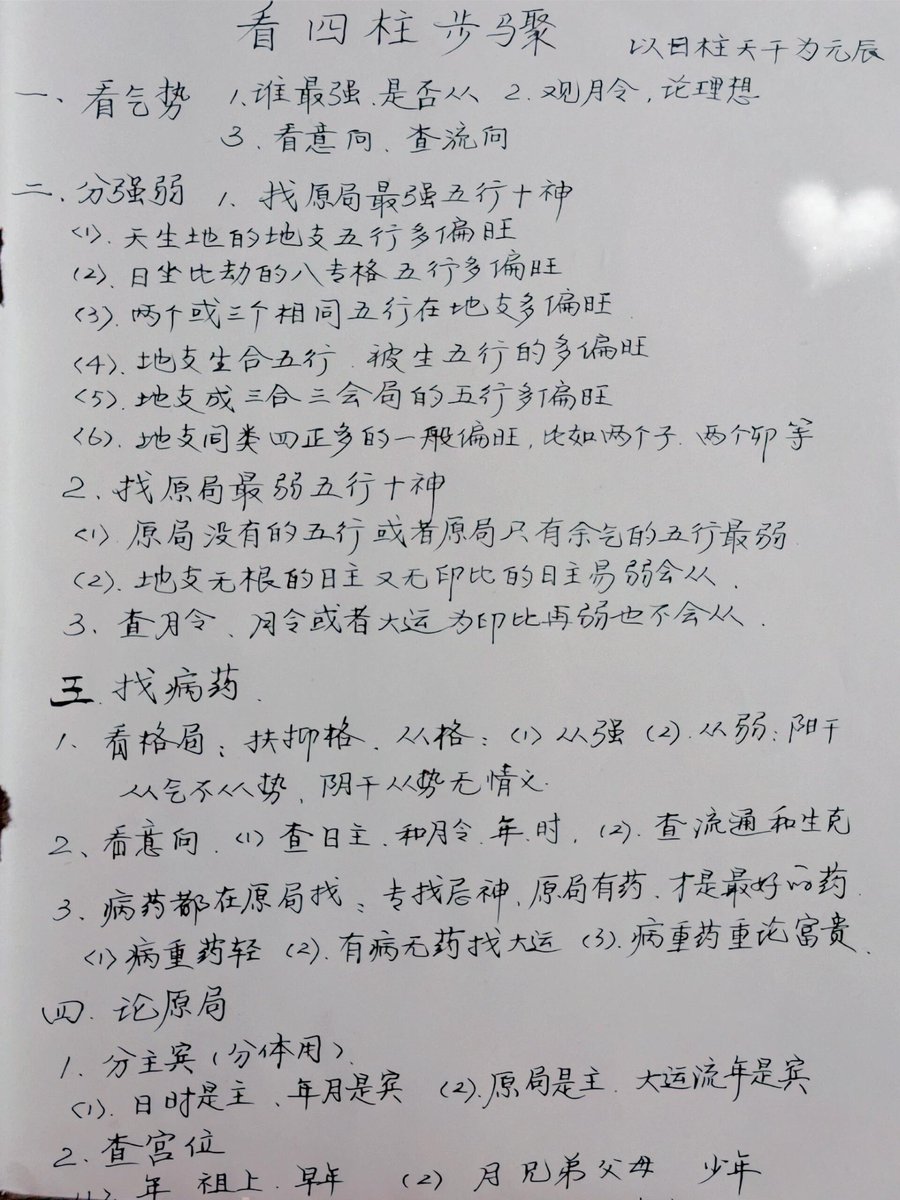 看四柱步骤 以日柱天干为元辰
一、看气势 1.谁最强.是否从 2.观月令,论理想
3.看意向、查流向
二.分强弱 1.找原局最强五行十神
(1).天生地的地支五行多偏旺
(2).日坐比劫的八专格五行多偏旺
(3).两个或三个相同五行在地支多偏旺.
(4).地支生合五行.被生五行的多偏旺
(5).地支成三合三会局的五行多偏旺
(6).地支同类四正多的一般偏旺,比如两个子.两个卯等
2.找原局最弱五行十神
(1).原局没有的五行或者原局只有余气的五行最弱.
(2).地支无根的日主又无印比的日主易弱会从.
3.查月令、月令或者大运为印比再弱也不会从.
三.找病药.
1.看格局:扶抑格.从格:(1)从强(2).从弱:阳干
从气不从势、阴干从势无情义.
2、看意向.(1)查日主.和月令.年.时,(2).查流通和生克
3.病药都在原局找:专找忌神、原局有药.才是最好的药.
(1)病重药轻(2).有病无药找大运(3).病重药重论富贵.
四.论原局
1.分主宾(分体用).
(1).日时是主、年月是宾 (2).原局是主.大运流年是宾
2.查宫位
(1)年 祖上.早年 (2)月兄弟父母 少年